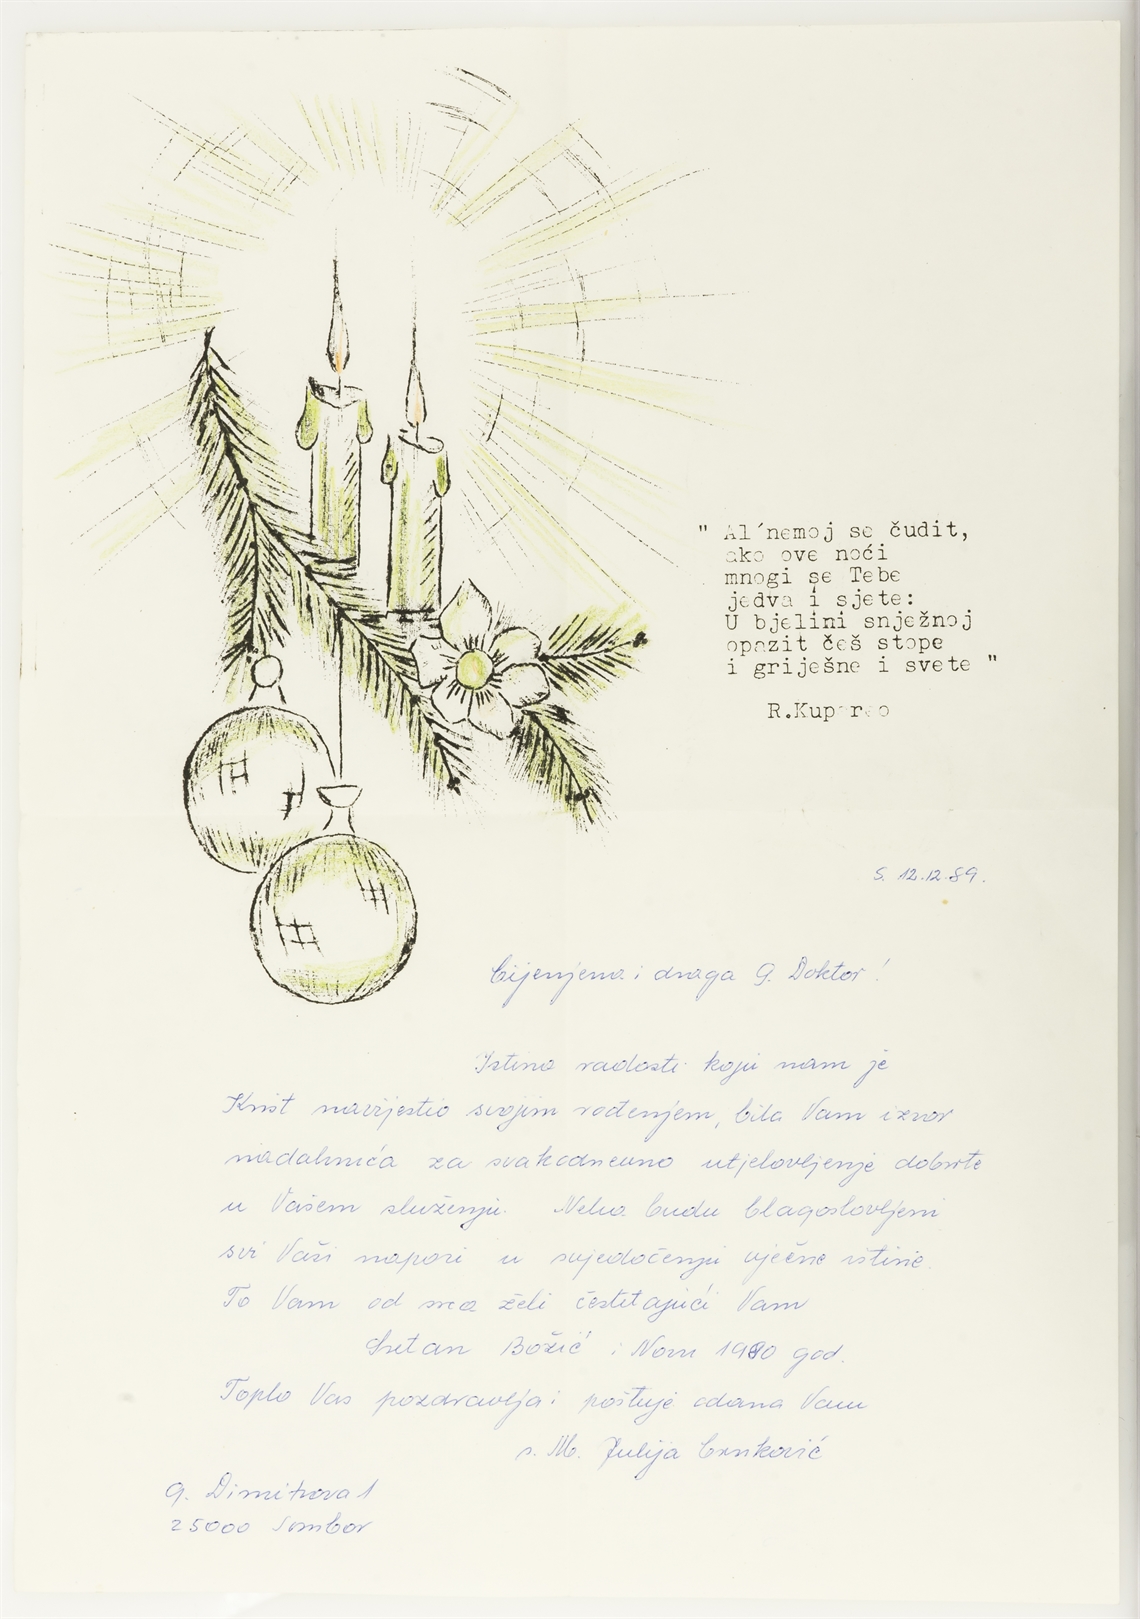 " Al´nemoj se čudit,
ako ove noći
mnogi se Tebe
jedva i sjete:
U bjelini snježnoj
opazit ćeš stope
i griješne i svete "
R.Kupareo
S. 12.12.89.
Cijenjena i draga G. Doktor!
Istina radosti koju nam je
Krist navijestio svojim rođenjem, bila Vam izvor
nadahnića za svakodnevno utjelovljenje dobrote
u Vašem služenju. Neka budu blagoslovljeni
svi Vaši napori u svjedočenju vječne istine.
To Vam od srca želi čestitajući Vam
Sretan Božić i Novu 1980 god.
Toplo Vas pozdravlja i poštuje odana Vam
s. M. Julija Crnković
G. Dimitrova 1
25000 Sombor